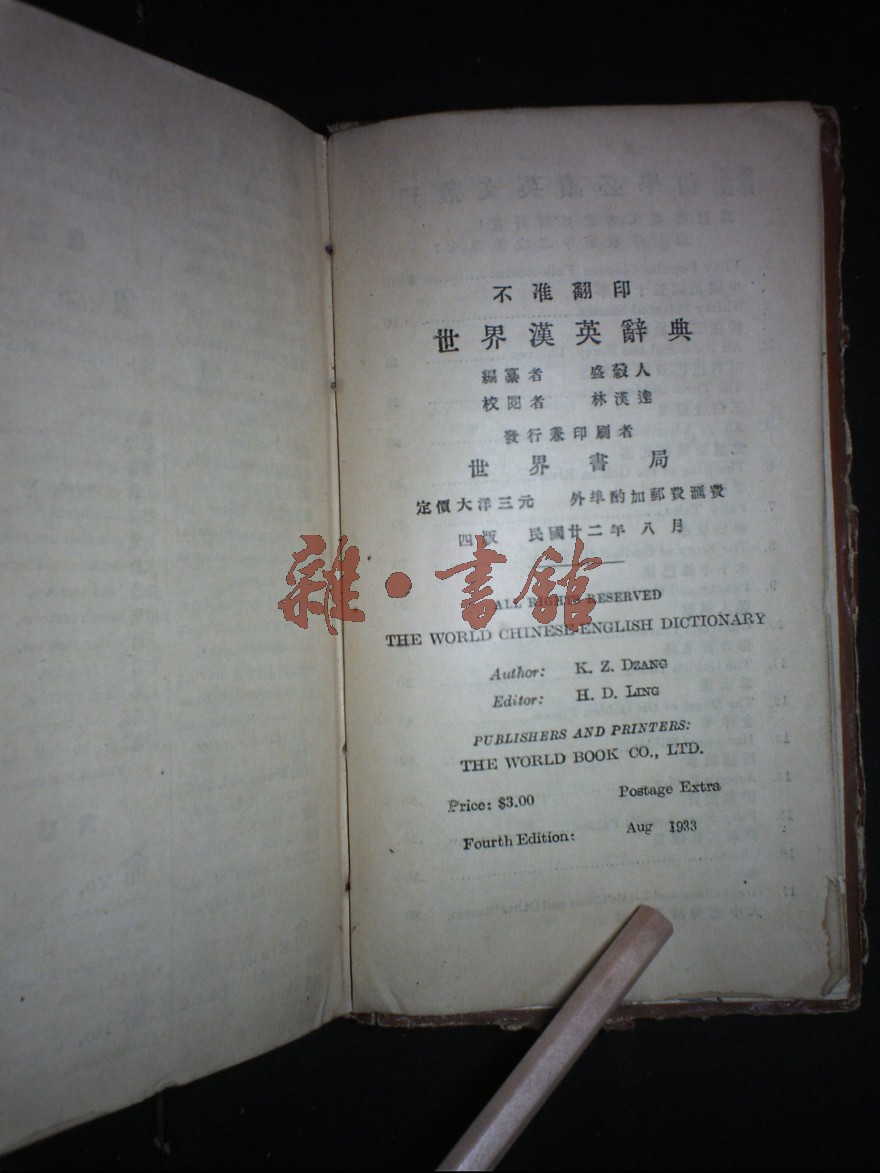 不准翻印
世界漢英辭典
編纂者 盛穀人
校閱者 林漢達
發行兼印刷者
世界書局
定價大洋三元 外埠酌加郵費滙費
四版 民國廿二年八月
雜·書館
ALL RIGHTS RESERVED
THE WORLD CHINESE-ENGLISH DICTIONARY
Author: K. Z. DZANG
Editor: H. D. LING
PUBLISHERS AND PRINTERS:
THE WORLD BOOK CO., LTD.
Price: $3.00 Postage Extra
Fourth Edition: Aug 1933